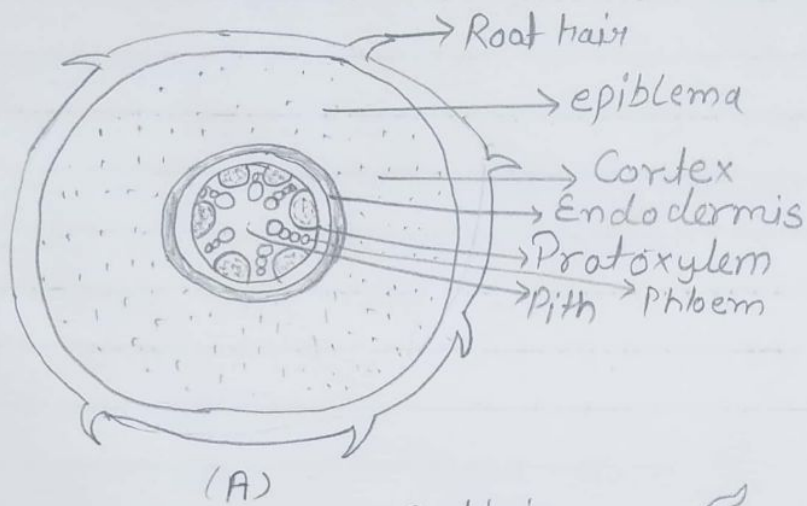 Root hair
epiblema
Cortex
Endodermis
Protoxylem
Pith
Phloem
(A)